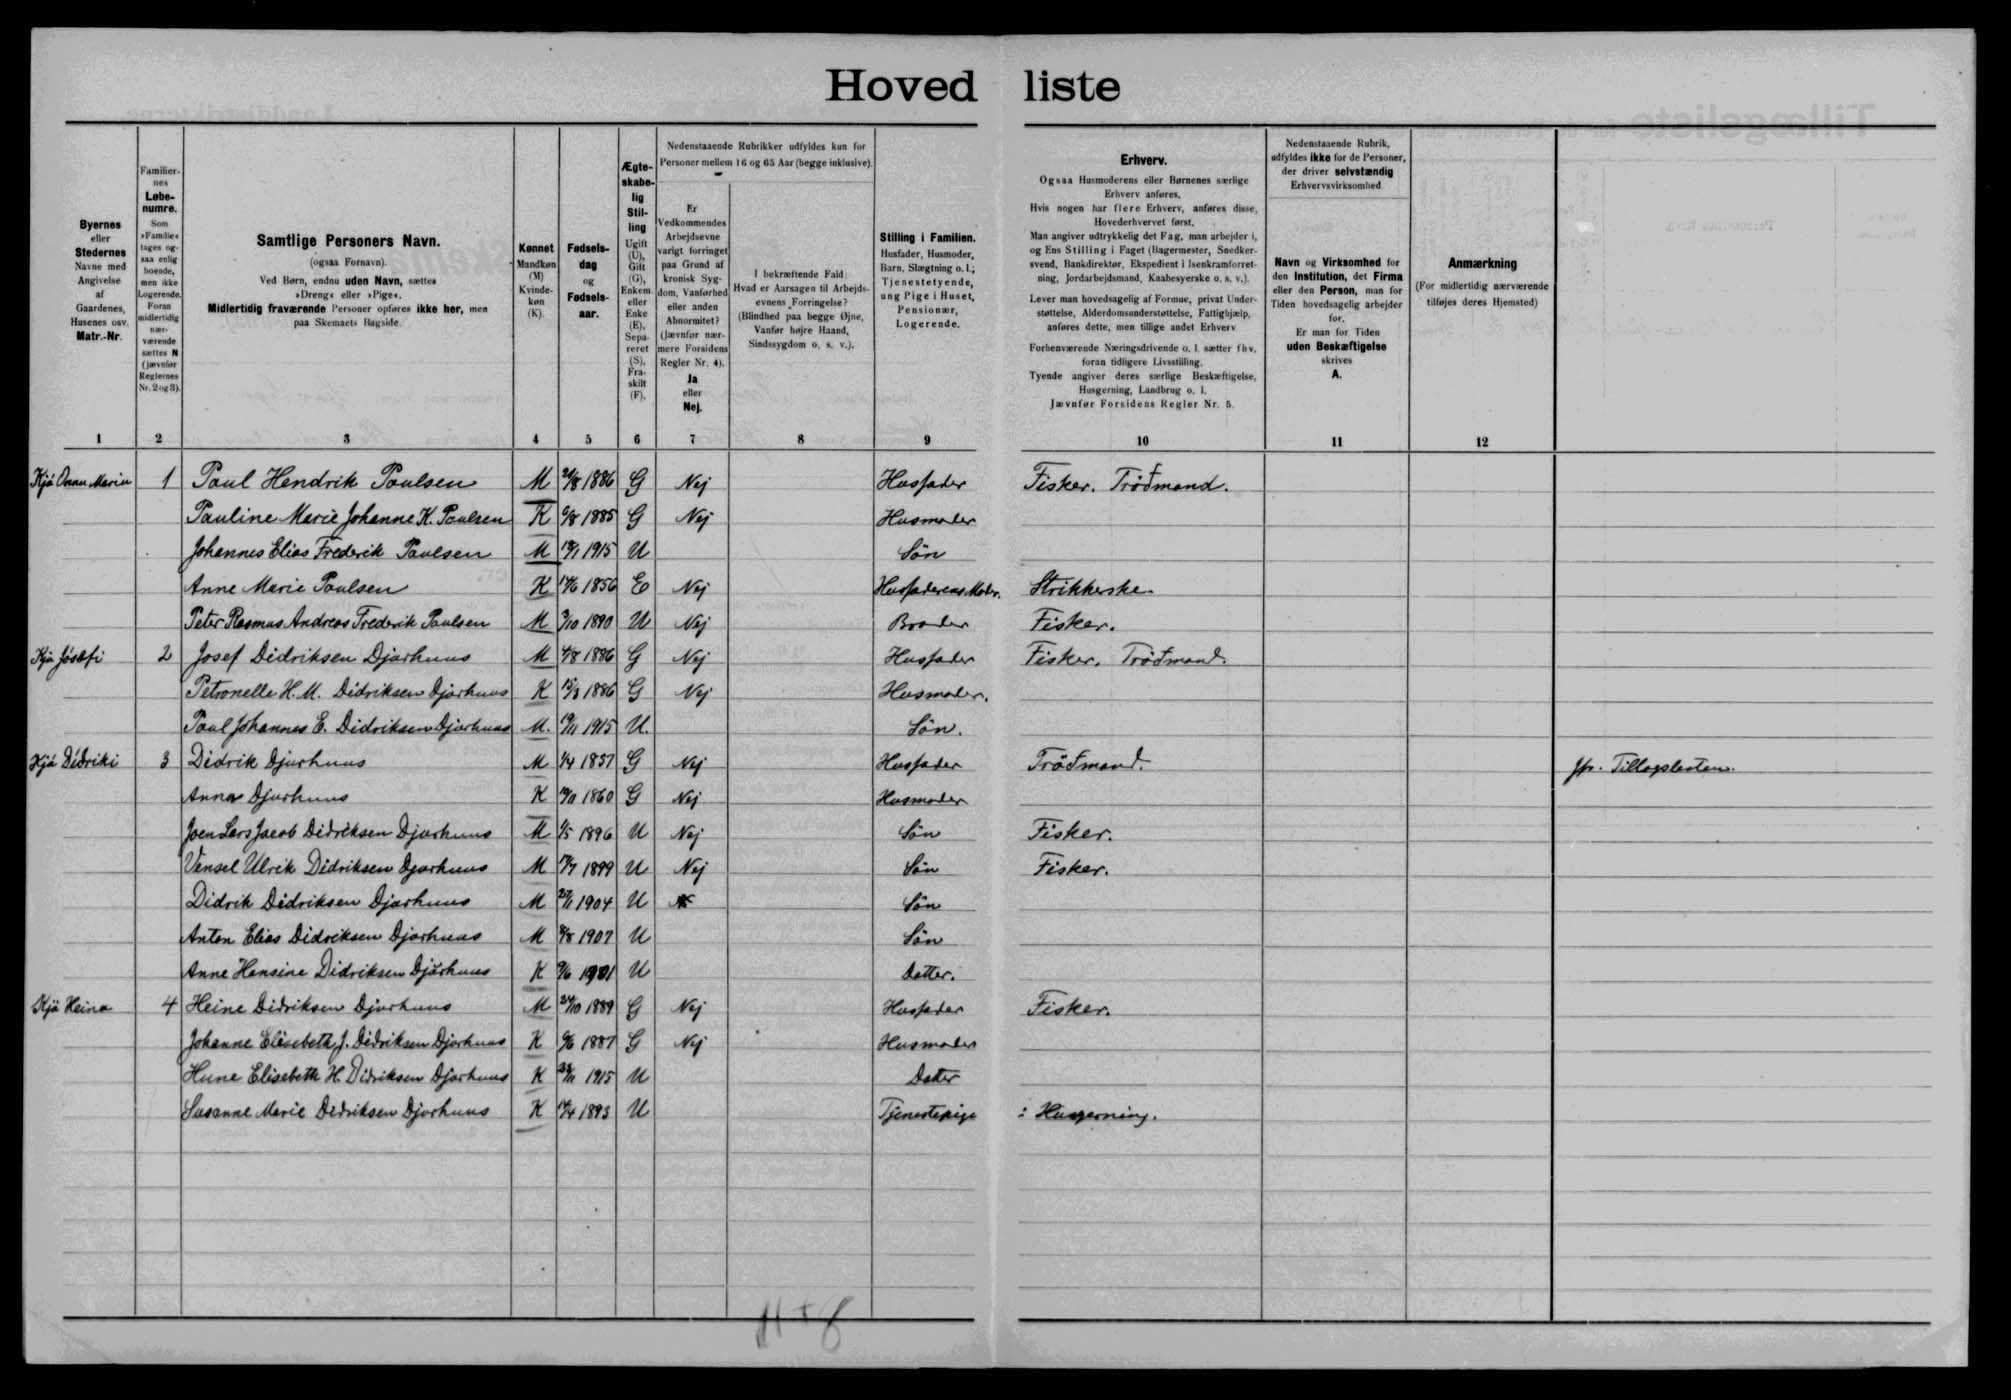 Hovedliste
Byernes eller Stedernes Navne med Angivelse af Gaardenes, Husenes osv. Matr.-Nr.
Familiernes Løbenumre. Som »Familie« tages ogsaa enlig boende, men ikke Logerende. Foran midlertidig nærværende sættes N (jævnfør Reglernes Nr. 2 og 3).
Samtlige Personers Navn.
(ogsaa Fornavn).
Ved Børn, endnu uden Navn, sættes »Dreng« eller »Pige«.
Midlertidig fraværende Personer opføres ikke her, men paa Skemaets Bagside.
Kønnet Mandkøn (M) Kvindekøn (K).
Fødselsdag og Fødselsaar.
Ægteskabelig Stilling Ugift (U), Gift (G), Enkem. eller Enke (E), Separeret (S), Fraskilt (F).
Nedenstaaende Rubrikker udfyldes kun for Personer mellem 16 og 65 Aar (begge inklusive).
Er Vedkommendes Arbejdsevne varigt forringet paa Grund af kronisk Sygdom, Vanførhed eller anden Abnormitet? (Jævnfør nærmere Forsidens Regler Nr. 4). Ja eller Nej.
I bekræftende Fald: Hvad er Aarsagen til Arbejdsevnens Forringelse? (Blindhed paa begge Øjne, Vanfør højre Haand, Sindssygdom o. s. v.).
Stilling i Familien.
Husfader, Husmoder, Barn, Slægtning o. l.; Tjenestetyende, ung Pige i Huset, Pensionær, Logerende.
Erhverv.
Ogsaa Husmoderens eller Børnenes særlige Erhverv anføres.
Hvis nogen har flere Erhverv, anføres disse, Hovederhvervet først.
Man angiver udtrykkelig det Fag, man arbejder i, og Ens Stilling i Faget (Bagermester, Snedkersvend, Bankdirektør, Ekspedient i Isenkramforretning, Jordarbejdsmand, Kaabesyerske o. s. v.).
Lever man hovedsagelig af Formue, privat Understøttelse, Alderdomsunderstøttelse, Fattighjælp, anføres dette, men tillige andet Erhverv
Forhenværende Næringsdrivende o. l. sætter fhv. foran tidligere Livsstilling.
Tyende angiver deres særlige Beskæftigelse, Husgerning, Landbrug o. l.
Jævnfør Forsidens Regler Nr. 5.
Nedenstaaende Rubrik, udfyldes ikke for de Personer, der driver selvstændig Erhvervsvirksomhed.
Navn og Virksomhed for den Institution, det Firma eller den Person, man for Tiden hovedsagelig arbejder for.
Er man for Tiden uden Beskæftigelse skrives A.
Anmærkning
(For midlertidig nærværende tilføjes deres Hjemsted)
1 2 3 4 5 6 7 8 9 10 11 12
Kjá Onnu Mariu 1 Paul Hendrik Poulsen M 21/8 1886 G Nej Husfader Fisker. Tröðmand.
Pauline Marie Johanne K. Poulsen K 6/8 1885 G Nej Husmoder
Johannes Elias Frederik Poulsen M 1915 U Sön
Anne Marie Poulsen K 1856 E Nej Husfaderens Moder. Strikkerske.
Peter Rasmus Andreas Frederik Poulsen M 1890 U Nej Broder Fisker.
Kjá Jósefi 2 Josef Didriksen Djurhuus M 4/8 1886 G Nej Husfader Fisker. Tröðmand.
Petronelle H. M. Didriksen Djurhuus K 15/3 1886 G Nej Husmoder.
Poul Johannes E. Didriksen Djurhuus M. 1915 U. Sön.
Kjá Didriki 3 Didrik Djurhuus M 1/4 1857 G Nej Husfader Tröðmand. Jfr. Tillægslisten.
Anna Djurhuus K 1860 G Nej Husmoder
Joen Lars Jacob Didriksen Djurhuus M 1/5 1896 U Nej Sön Fisker.
Vensel Ulrik Didriksen Djurhuus M 1899 U Nej Sön Fisker.
Didrik Didriksen Djurhuus M 1904 U Sön
Anton Elias Didriksen Djurhuus M 1907 U Sön
Anne Hansine Didriksen Djurhuus K 1901 U Datter.
Kjá Heina 4 Heine Didriksen Djurhuus M 24/10 1889 G Nej Husfader Fisker.
Johanne Elisebeth J. Didriksen Djurhuus K 1887 G Nej Husmoder
Hune Elisebeth H. Didriksen Djurhuus K 1915 U Datter
Susanne Marie Didriksen Djurhuus K 1893 U Tjenestepige : Husgerning.
11 + 8